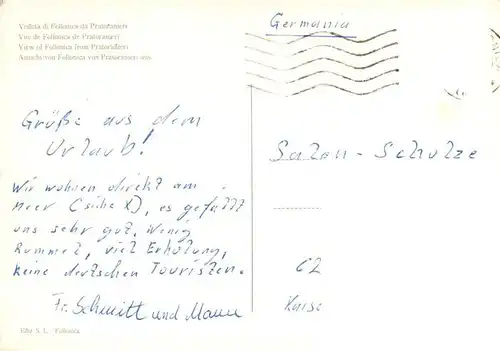 Veduta di Follonica da Pratoranieri
Vue de Follonica de Pratoranieri
View of Follonica from Pratoranieri
Ansicht von Follonica von Pratoranieri aus
Germania
Grüße aus dem
Urlaub!
Wir wohnen direkt am
Meer (siehe X), es gefällt
uns sehr gut. Wenig
Rummel, viel Erholung,
keine deutschen Touristen.
Fr. Schmitt und Mann
Salon - Schulze
62
Elba S. L. - Follonica